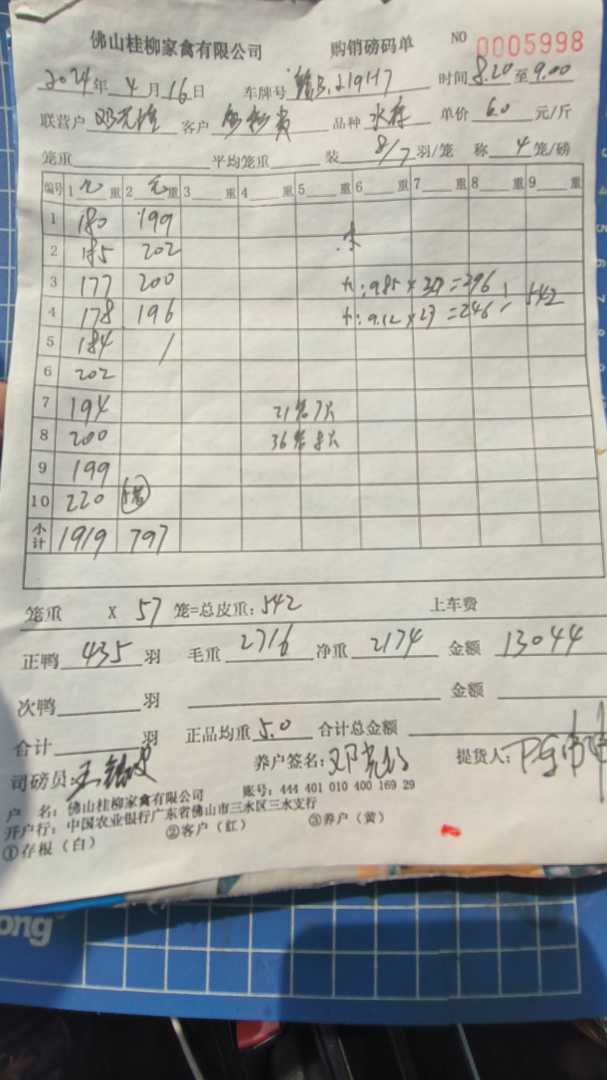 佛山桂柳家禽有限公司 购销磅码单 NO 0005998
2024年4月16日 车牌号 时间8.20至9.00
联营户 客户 品种 单价6.0元/斤
笼重 平均笼重 装8/7羽/笼 称4笼/磅
编号 1 重 2 重 3 重 4 重 5 重 6 重 7 重 8 重 9 重
1 180 199
2 185 202
3 177 200 9.85×30=296
4 178 196 9.12×27=246 542
5 184 /
6 202
7 194 21笼7只
8 200 36笼8只
9 199
10 220
小计 1919 797
笼重 X 57 笼=总皮重:542 上车费
正鸭435羽 毛重2716 净重2174 金额13044
次鸭 羽 金额
合计 羽 正品均重5.0 合计总金额
司磅员: 养户签名: 提货人:
户 名:佛山桂柳家禽有限公司 账号:444 401 010 400 169 29
开户行:中国农业银行广东省佛山市三水区三水支行
①存根(白) ②客户(红) ③养户(黄)
ong